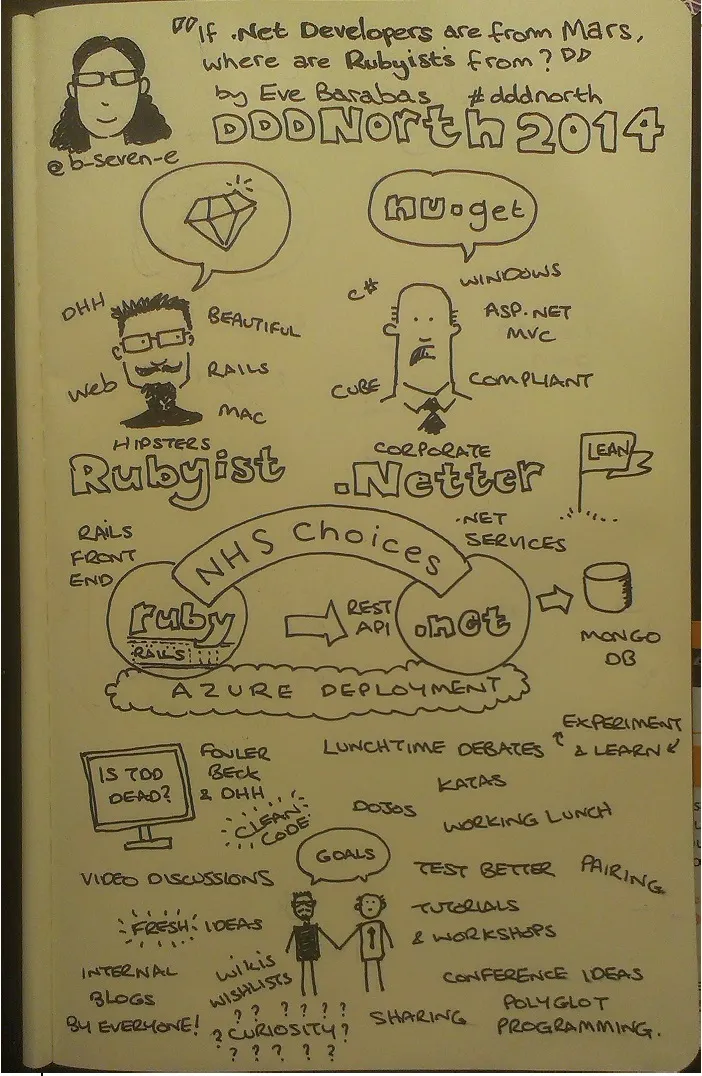 "If .Net Developers are from Mars,
where are Rubyists from?"
by Eve Barabas #dddnorth
DDDNorth 2014
@b-seven-e
nu.get
DHH
BEAUTIFUL
Web
RAILS
MAC
HIPSTERS
Rubyist
C#
WINDOWS
ASP.NET
MVC
CUBE
COMPLIANT
CORPORATE
.Netter
LEAN
RAILS
FRONT
END
NHS Choices
.NET
SERVICES
ruby
RAILS
REST
API
.net
MONGO
DB
AZURE DEPLOYMENT
IS TDD
DEAD?
FOWLER
BECK
& DHH
CLEAN
CODE
LUNCHTIME DEBATES
EXPERIMENT
& LEARN
KATAS
DOJOS
WORKING LUNCH
GOALS
VIDEO DISCUSSIONS
TEST BETTER
PAIRING
FRESH IDEAS
TUTORIALS
& WORKSHOPS
INTERNAL
BLOGS
BY EVERYONE!
WIKIS
WISHLISTS
? ? ? ? ? ?
? CURIOSITY ?
? ? ? ? ?
SHARING
CONFERENCE IDEAS
POLYGLOT
PROGRAMMING.